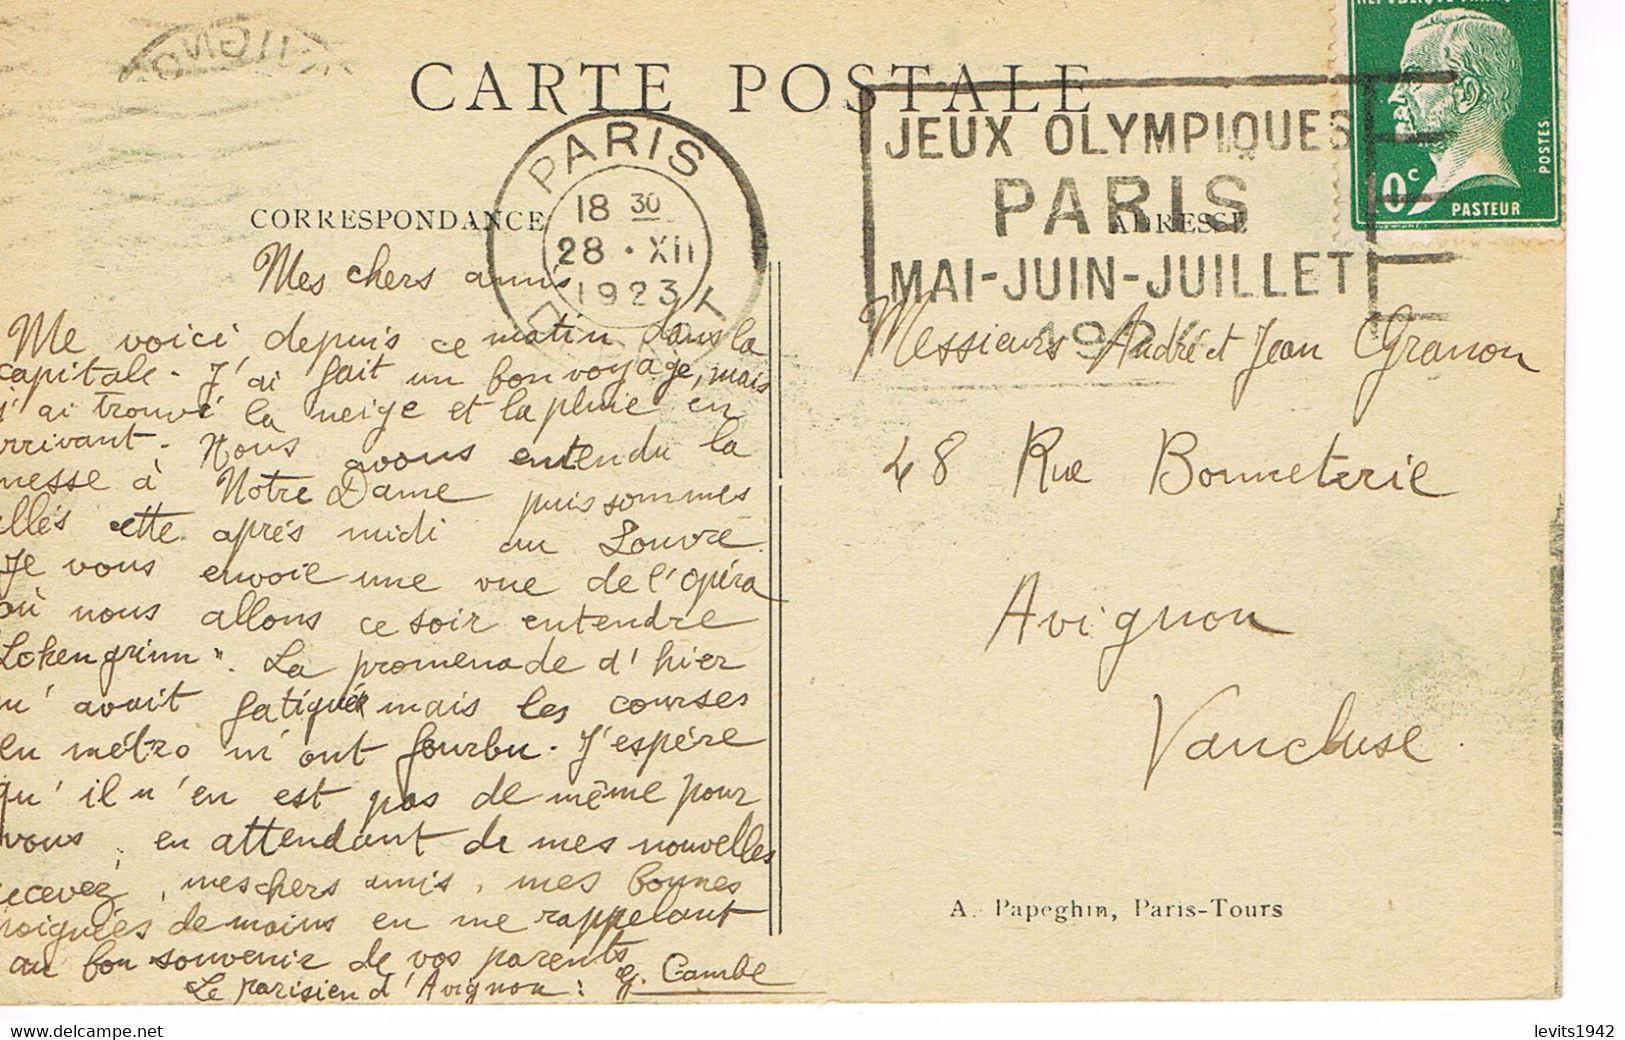 CARTE POSTALE
RÉPUBLIQUE FRANÇAISE
POSTES
10c
PASTEUR
PARIS
18 30
28 · XII
1923
JEUX OLYMPIQUES
PARIS
MAI-JUIN-JUILLET
1924
CORRESPONDANCE
ADRESSE
Mes chers amis
Me voici depuis ce matin dans la
capitale. J'ai fait un bon voyage, mais
j'ai trouvé la neige et la pluie en
arrivant. Nous avons entendu la
messe à Notre Dame puis sommes
allés cette après midi au Louvre.
Je vous envoie une vue de l'opéra
où nous allons ce soir entendre
"Lohengrinn". La promenade d'hier
m'avait fatigué mais les courses
en métro m'ont fourbu. J'espère
qu'il n'en est pas de même pour
vous, en attendant de mes nouvelles
recevez, mes chers amis, mes bonnes
poignées de mains en me rappelant
au bon souvenir de vos parents
Le parisien d'Avignon : G. Cambe
Messieurs André et Jean Granon
48 Rue Bonneterie
Avignon
Vaucluse.
A. Papeghin, Paris-Tours
www.delcampe.net
levits1942